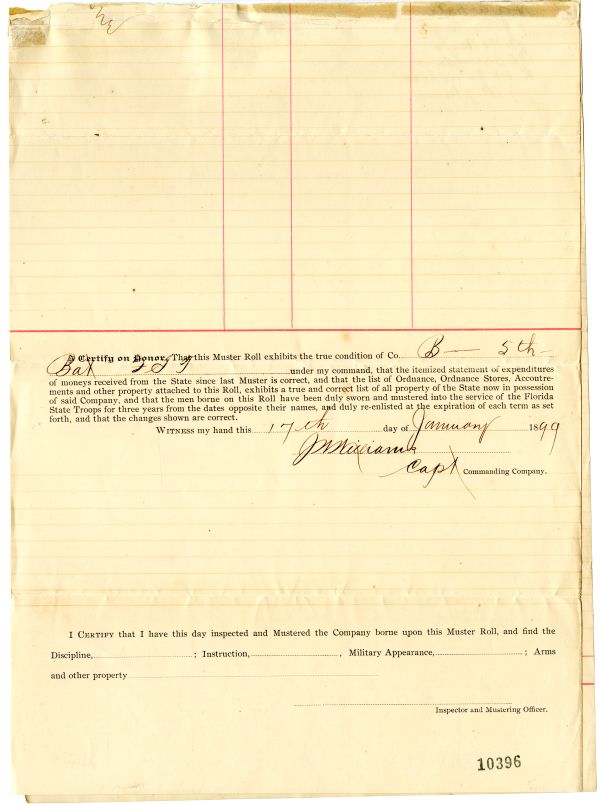 I Certify on Honor, That this Muster Roll exhibits the true condition of Co. B — 5th
Bat under my command, that the itemized statement of expenditures
of moneys received from the State since last Muster is correct, and that the list of Ordnance, Ordnance Stores, Accoutre-
ments and other property attached to this Roll, exhibits a true and correct list of all property of the State now in possession
of said Company, and that the men borne on this Roll have been duly sworn and mustered into the service of the Florida
State Troops for three years from the dates opposite their names, and duly re-enlisted at the expiration of each term as set
forth, and that the changes shown are correct.
WITNESS my hand this 17th day of January 1899
J W Williams
Capt Commanding Company.
I CERTIFY that I have this day inspected and Mustered the Company borne upon this Muster Roll, and find the
Discipline, ; Instruction, , Military Appearance, ; Arms
and other property
Inspector and Mustering Officer.
10396